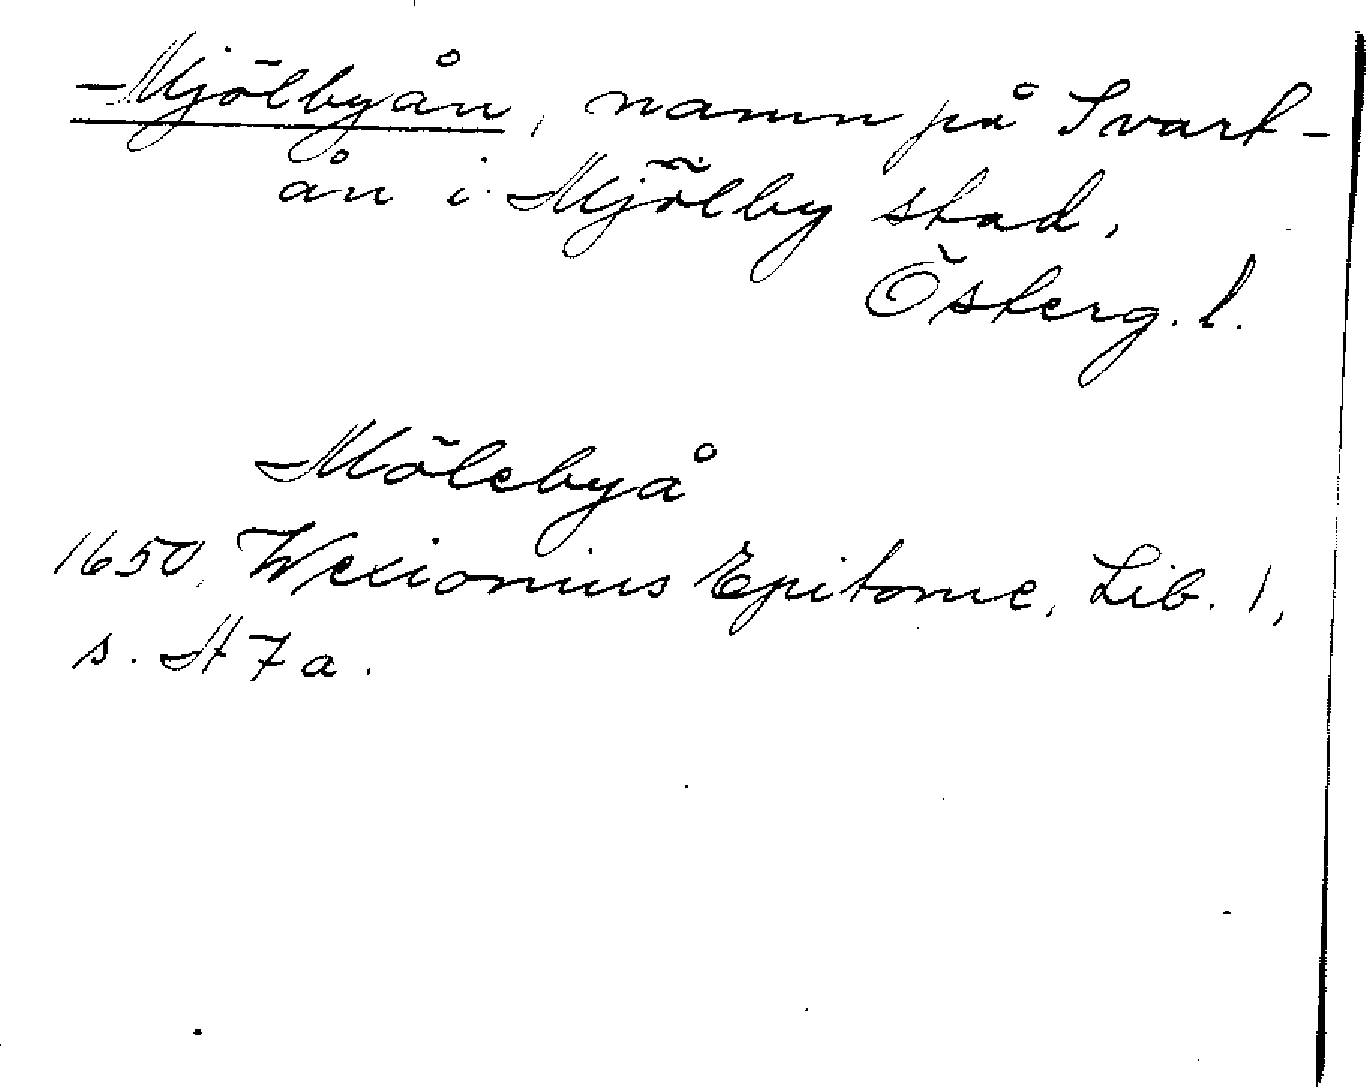 Mjölbyån, namn på Svart-
ån i Mjölby stad,
Österg. l.
Mölebyå
1650, Wexionius Epitome, Lib. 1,
s. H 7 a.